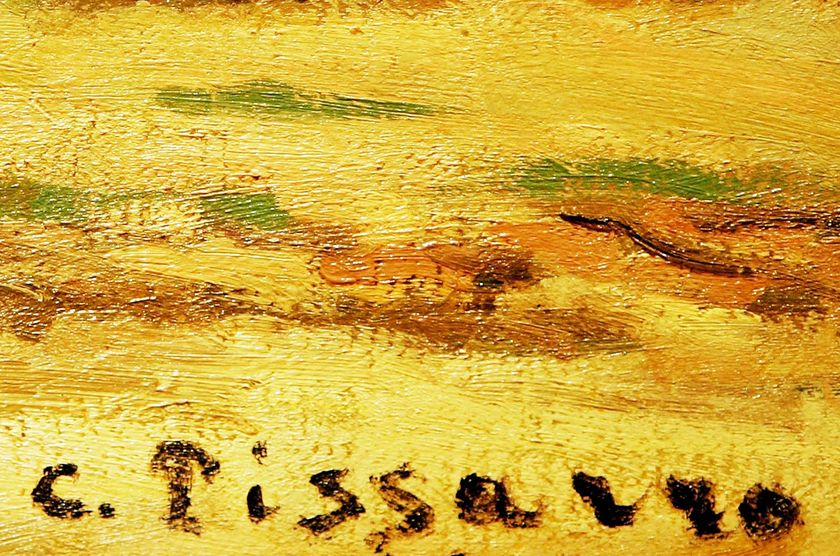 C. Pissarro